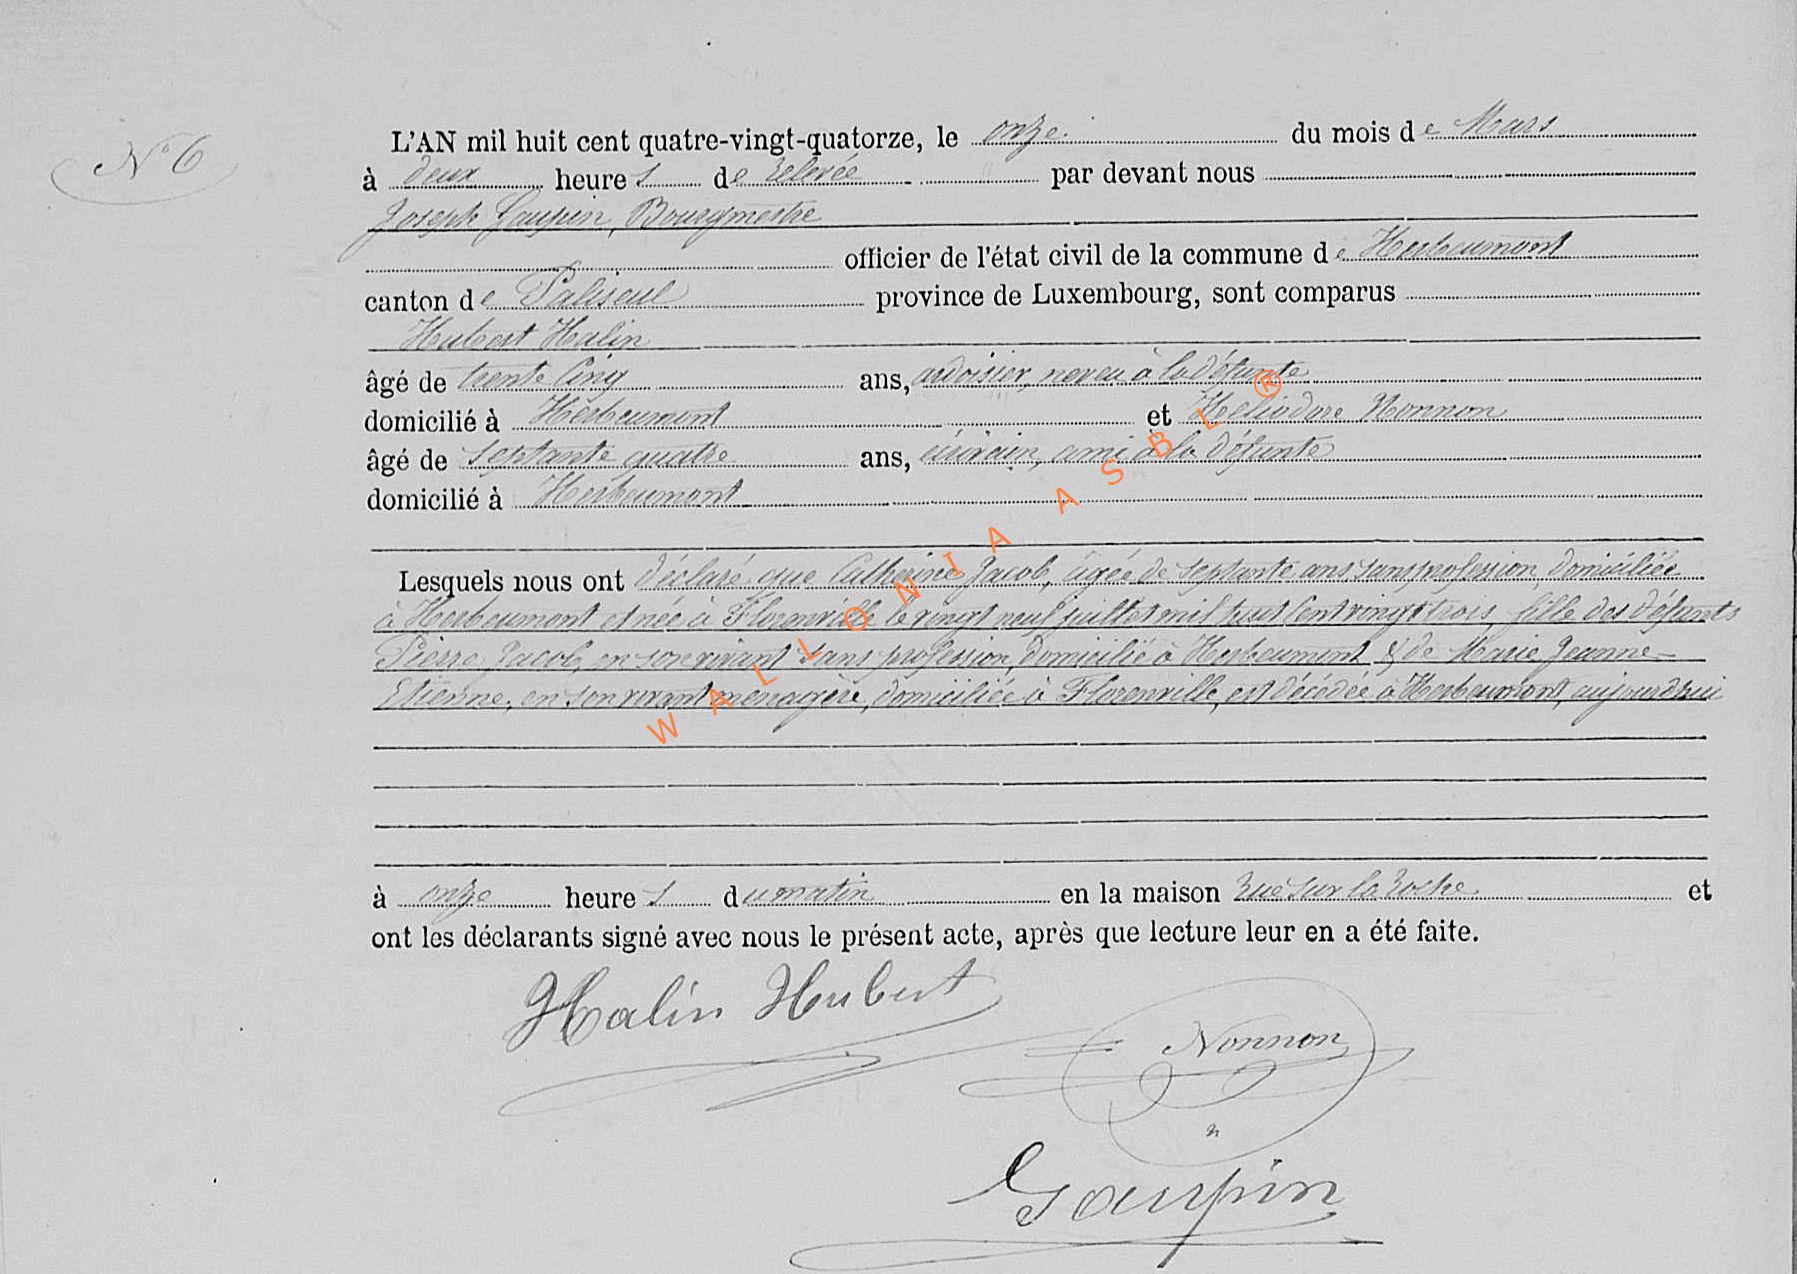 N° 6
L'AN mil huit cent quatre-vingt-quatorze, le onze du mois de Mars
à deux heures de relevée par devant nous
Joseph Gaupin, Bourgmestre
officier de l'état civil de la commune de Herbeumont
canton de Paliseul province de Luxembourg, sont comparus
Hubert Halin
âgé de trente cinq ans, ardoisier, neveu à la défunte
domicilié à Herbeumont et Héliodore Nonnon
âgé de septante quatre ans, écrivain, ami à la défunte
domicilié à Herbeumont
Lesquels nous ont déclaré que Catherine Jacob, âgée de septante ans sans profession, domiciliée
à Herbeumont et née à Florenville le vingt neuf juillet mil huit cent vingt trois, fille des défunts
Pierre Jacob, en son vivant sans profession, domicilié à Herbeumont & de Marie Jeanne
Etienne, en son vivant ménagère, domiciliée à Florenville, est décédée à Herbeumont, aujourd'hui
à onze heures du matin en la maison rue sur la roche et
ont les déclarants signé avec nous le présent acte, après que lecture leur en a été faite.
Halin Hubert
Nonnon
Gaupin
WALLONIA ASBL ®